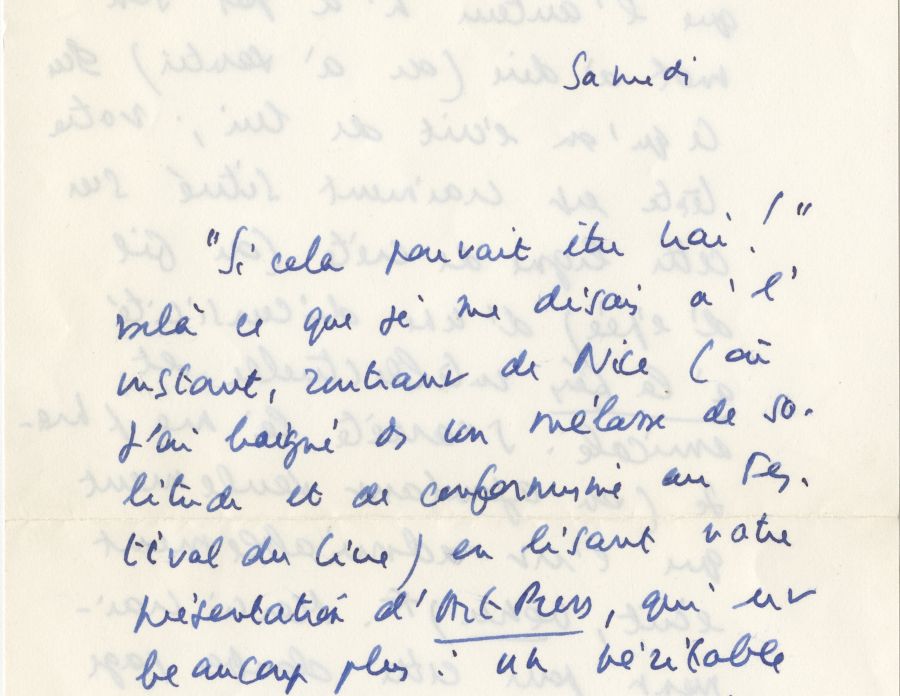 Samedi
"Si cela pouvait être vrai !"
voilà ce que je me disais à l'
instant, rentrant de Nice (où
j'ai baigné ds un mélasse de so-
litude et de conformisme au Fes-
tival du livre) en lisant votre
présentation d'Art Press, qui est
beaucoup plus : un véritable